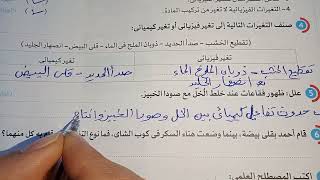 4 - التغيرات الفيزيائية لا تغير من تركيب المادة.
صنف التغيرات التالية إلى تغير فيزيائى أو تغير كيميائى:
(تقطيع الخشب - صدأ الحديد - ذوبان الملح فى الماء - قلى البيض - انصهار الجليد)
تغير فيزيائى
تغير كيميائى
تقطيع الخشب - ذوبان الملح فى الماء
صدأ الحديد - قلى البيض
انصهار الجليد
5 علل: ظهور فقاعات عند خلط الخل مع صودا الخبيز.
حدوث تفاعل كيميائى بين الخل وصودا الخبيز وانتاج
6 قام أحمد بقلى بيضة، بينما وضعت هناء السكر فى كوب الشاى، فما نوع
كل منهما؟
اكتب المصطلح العلمى: